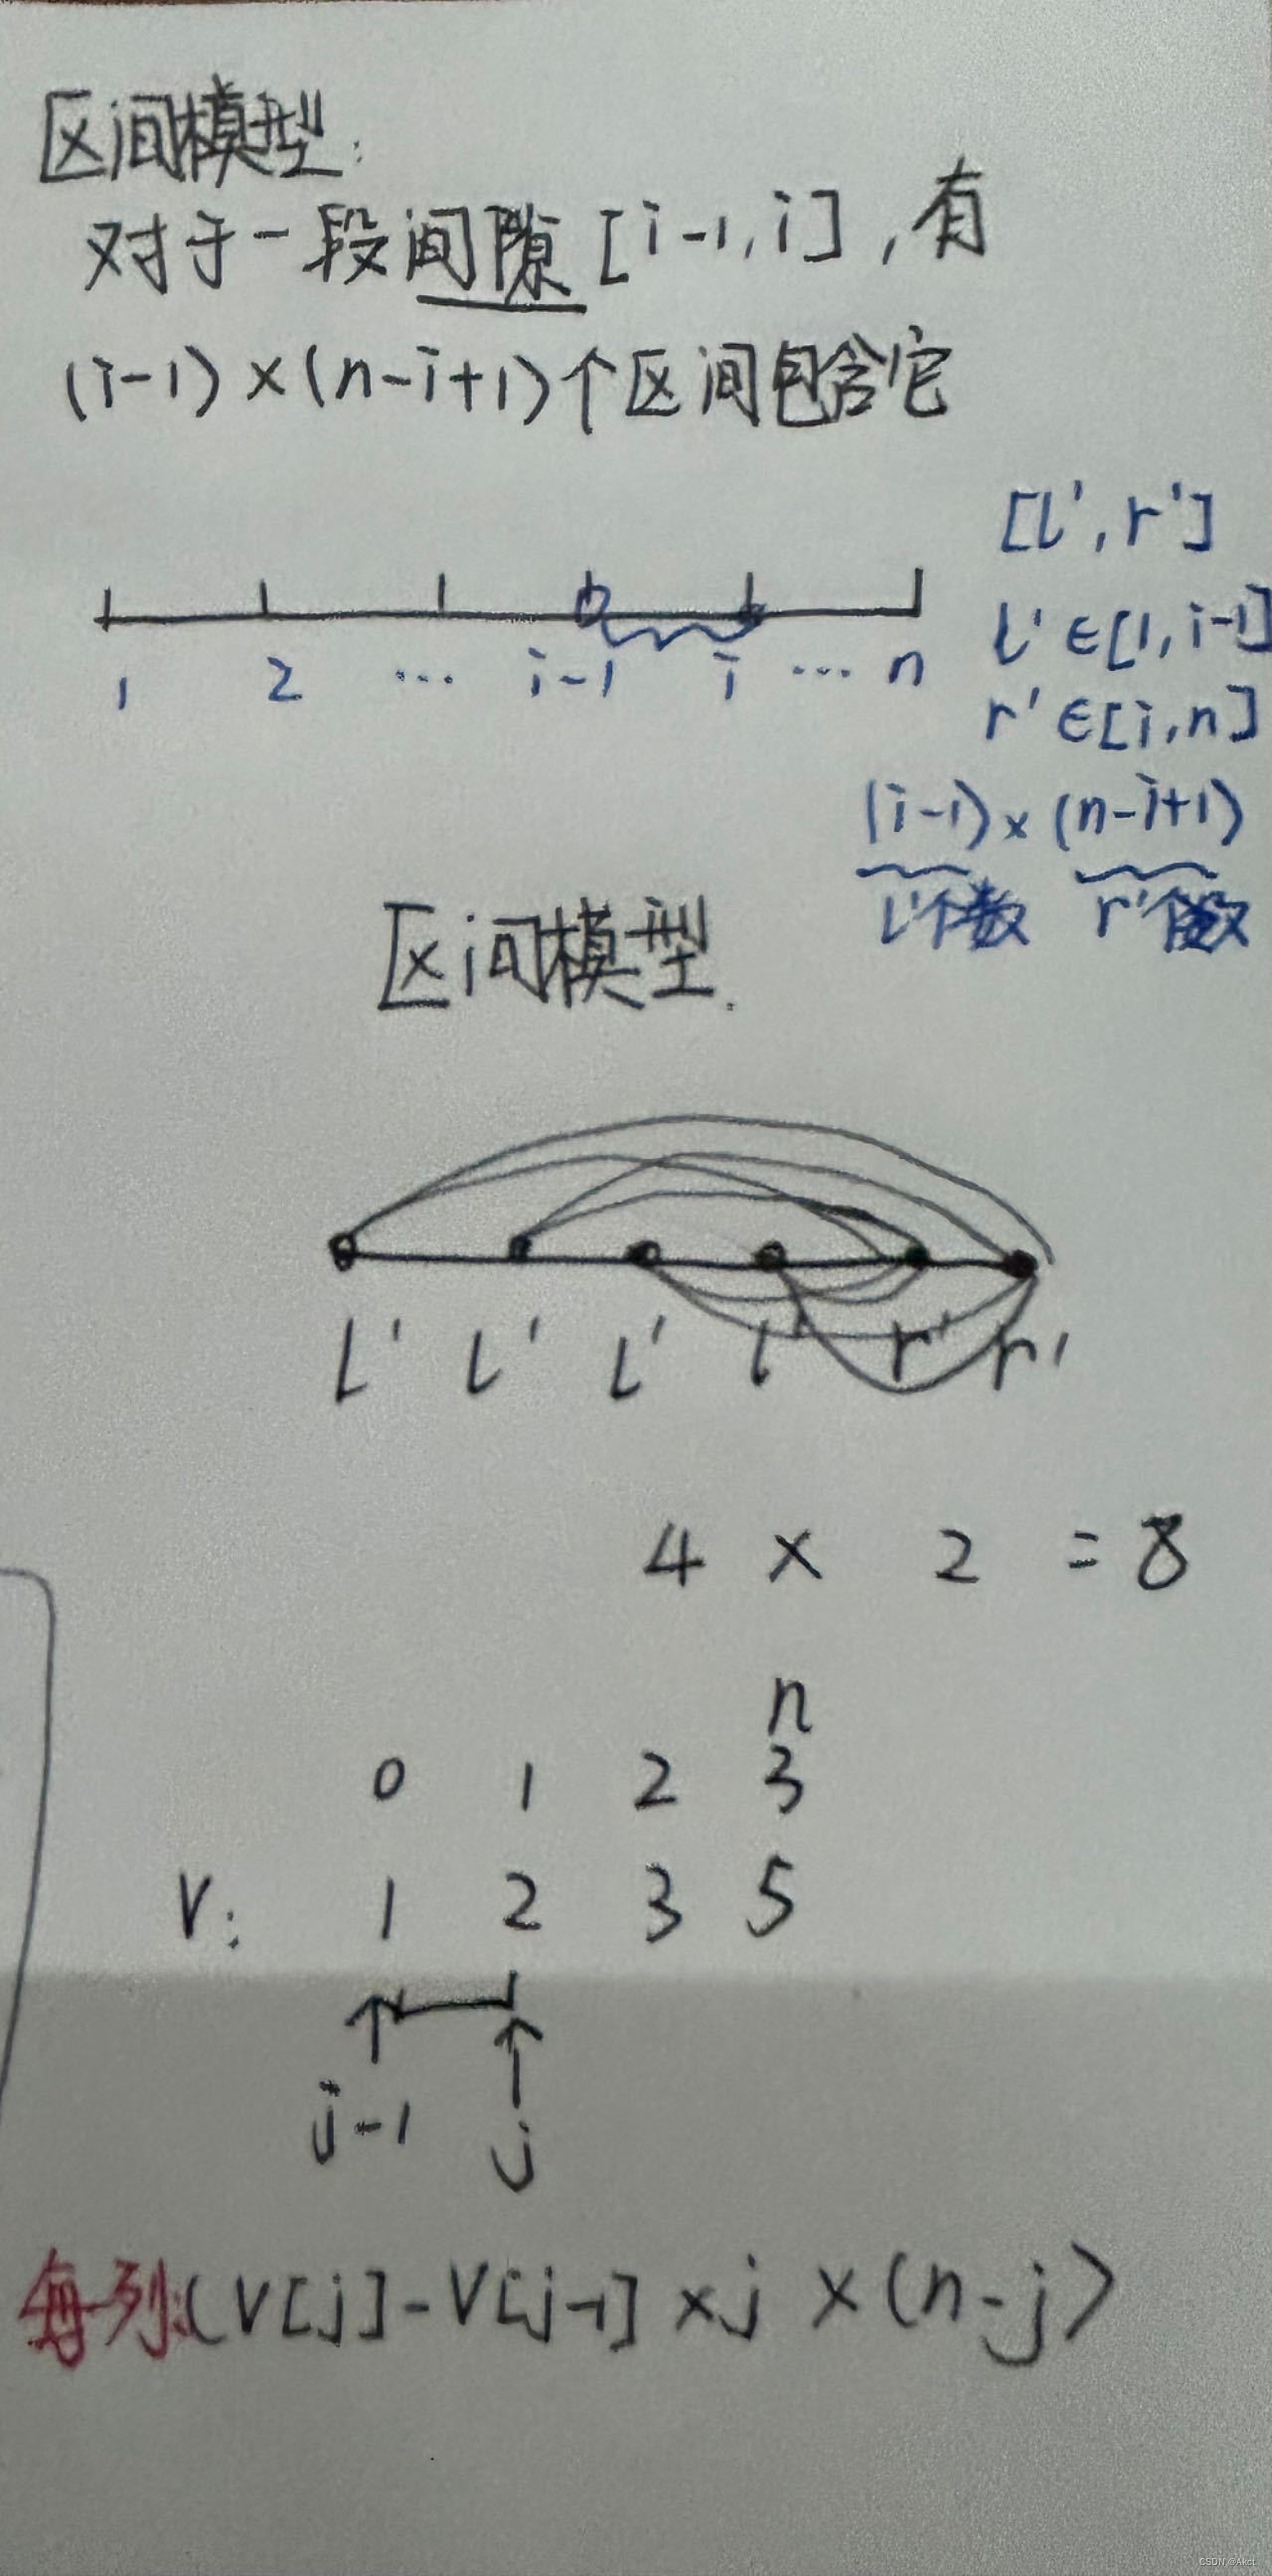 区间模型:
对于一段间隙[i-1,i],有
(i-1)×(n-i+1)个区间包含它
[l',r']
l'∈[1,i-1]
1 2 ... i-1 i ... n
r'∈[i,n]
(i-1)×(n-i+1)
l'个数 r'个数
区间模型.
l' l' l' l' r' r'
4 × 2 = 8
n
0 1 2 3
V: 1 2 3 5
j-1 j
每列:(V[j]-V[j-1]×j×(n-j)
CSDN @Akct